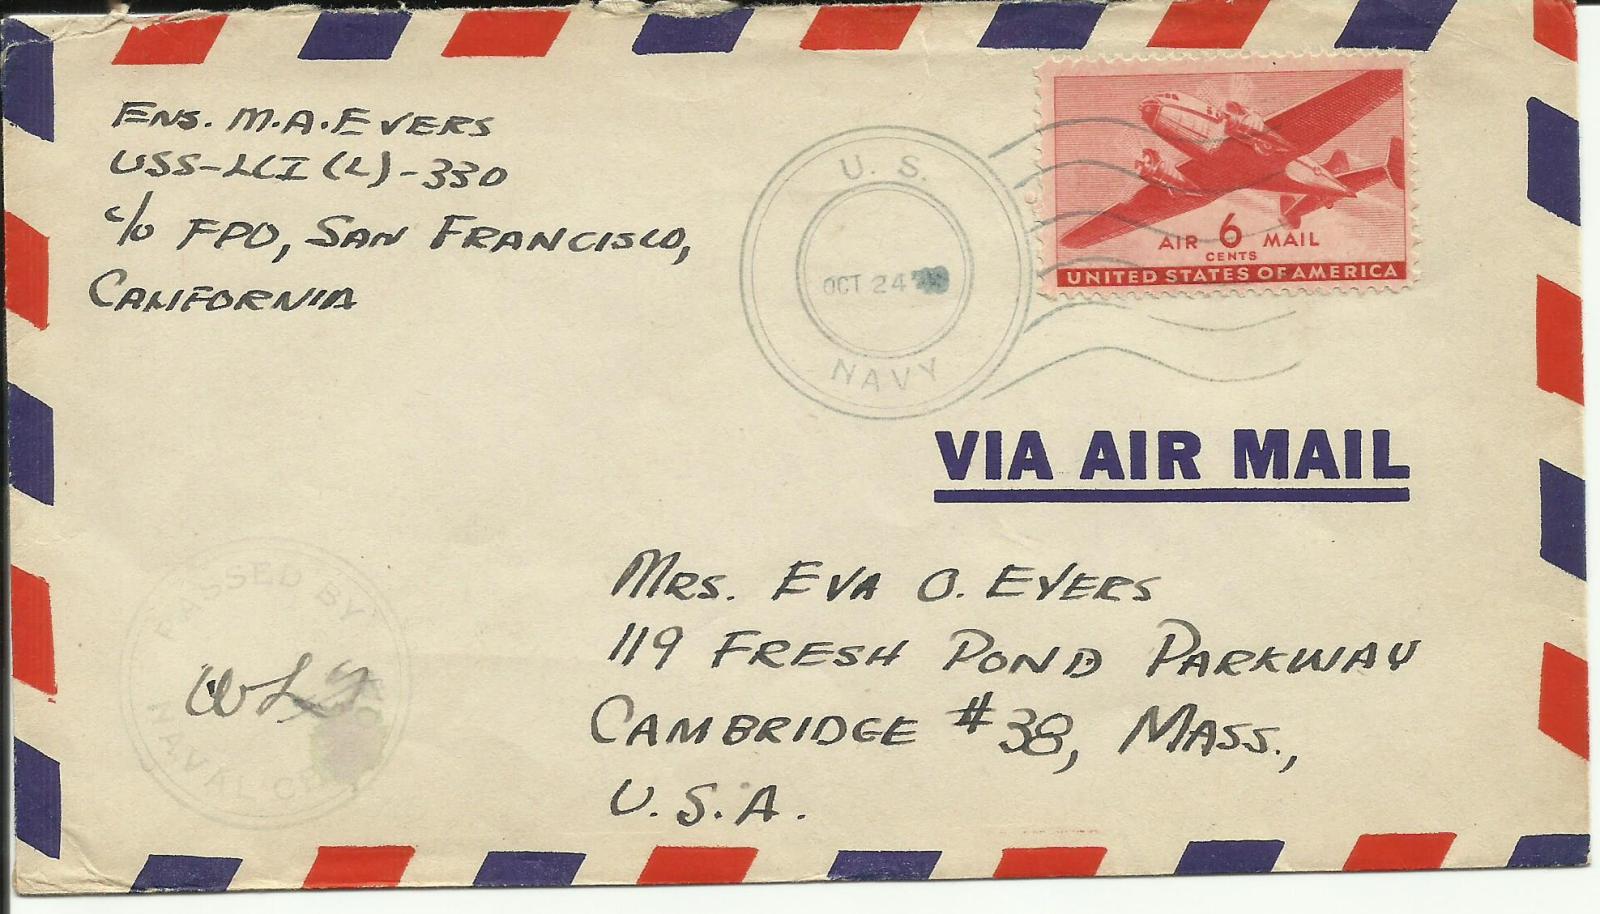 ENS. M.A. EVERS
USS-LCI (L) - 330
c/o FPO, SAN FRANCISCO,
CALIFORNIA
U. S.
OCT 24
NAVY
AIR 6 MAIL
CENTS
UNITED STATES OF AMERICA
VIA AIR MAIL
MRS. EVA O. EVERS
119 FRESH POND PARKWAY
CAMBRIDGE #38, MASS.,
U.S.A.
PASSED BY
NAVAL